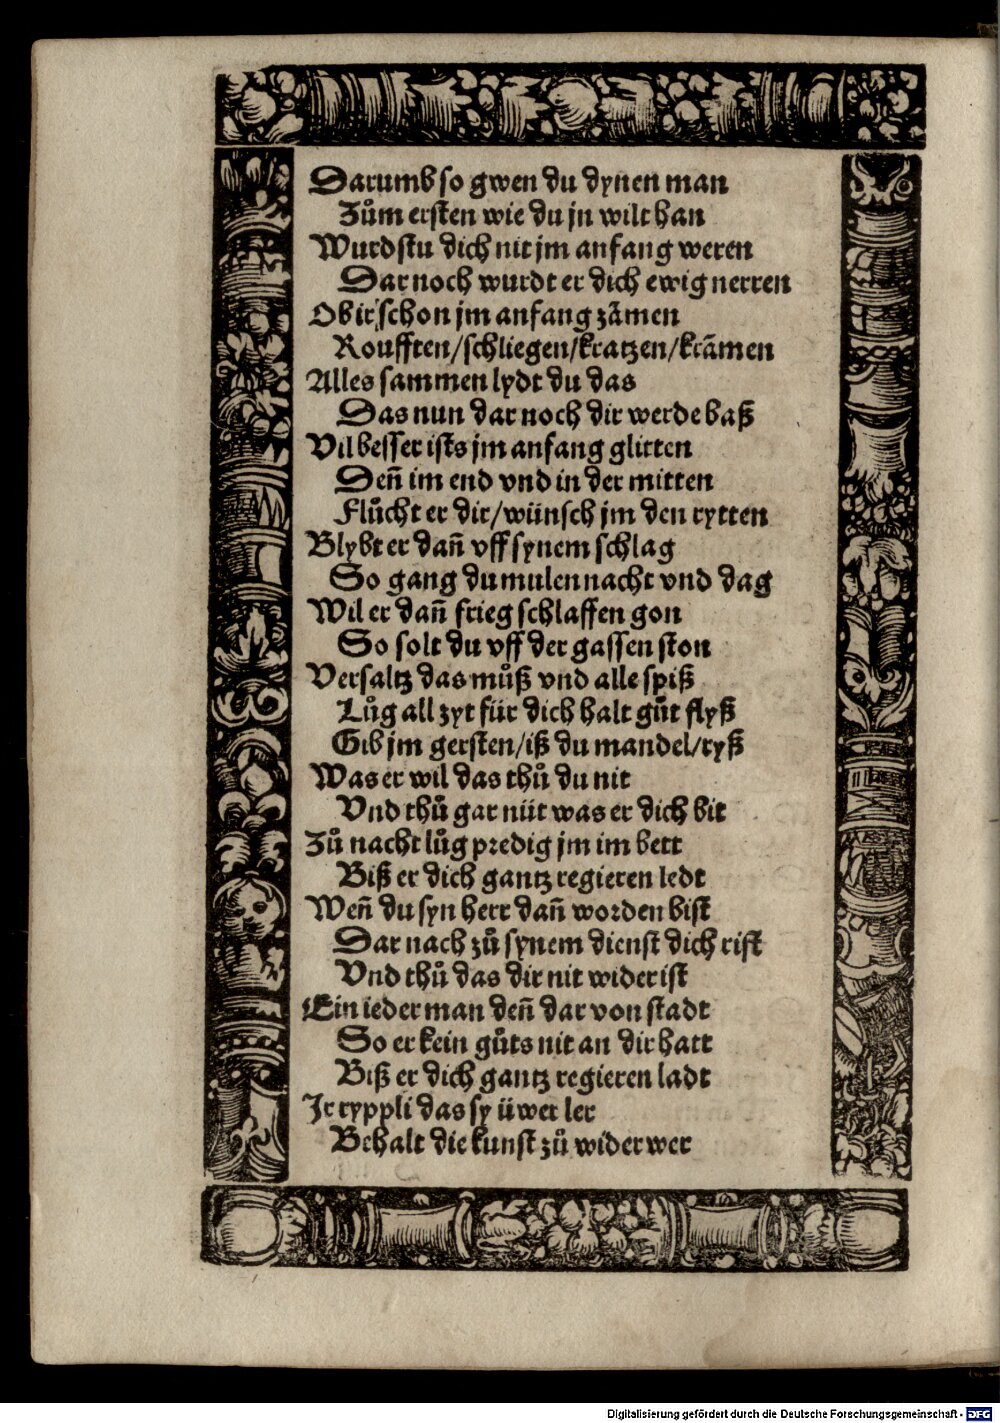 Darumb so gwen du dynen man
Zům ersten wie du jn wilt han
Wurdstu dich nit jm anfang weren
Dar noch wurdt er dich ewig nerren
Ob ir schon jm anfang zämen
Roufften/schliegen/kratzen/krämen
Alles sammen lydt du das
Das nun dar noch dir werde baß
Vil besser ists jm anfang glitten
Deñ im end vnd in der mitten
Flůcht er dir/wünsch jm den rytten
Blybt er dañ vff synem schlag
So gang du mulen nacht vnd dag
Wil er dañ frieg schlaffen gon
So solt du vff der gassen ston
Versaltz das můß vnd alle spiß
Lůg all zyt für dich halt gůt flyß
Gib jm gersten/iß du mandel/ryß
Was er wil das thů du nit
Vnd thů gar nüt was er dich bit
Zů nacht lůg predig jm im bett
Biß er dich gantz regieren ledt
Weñ du syn herr dañ worden bist
Dar nach zů synem dienst dich rist
Vnd thů das dir nit wider ist
Ein ieder man deñ dar von stadt
So er kein gůts nit an dir hatt
Biß er dich gantz regieren ladt
Ir ryppli das sy üwer ler
Behalt die kunst zů wider wer
Digitalisierung gefördert durch die Deutsche Forschungsgemeinschaft - DFG